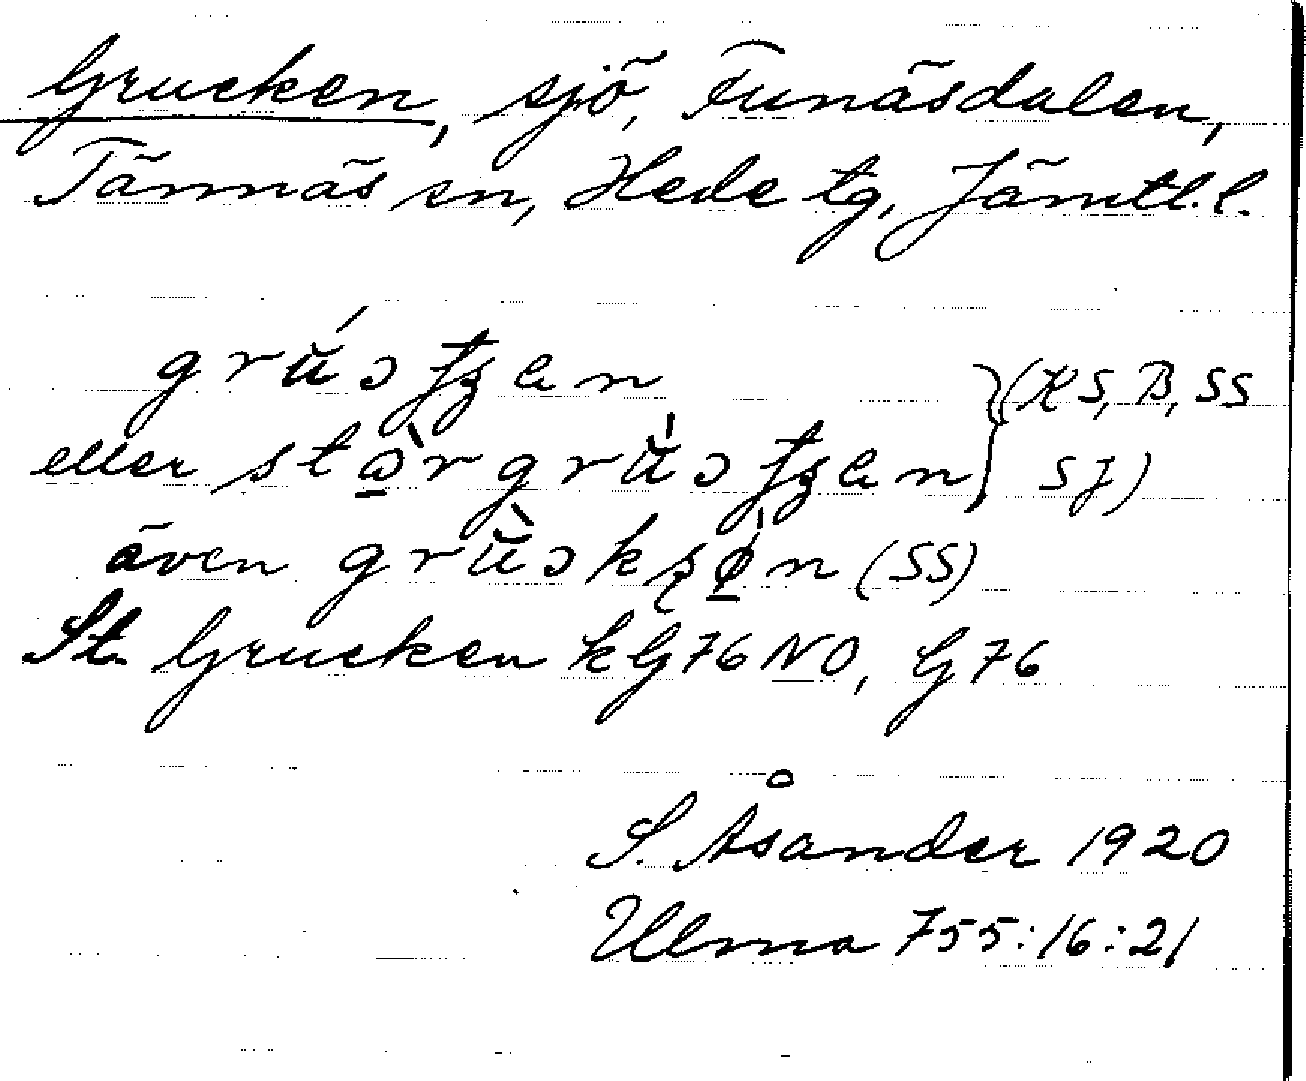 Grucken, sjö, Funäsdalen,
Tännäs sn, Hede tg, Jämtl. l.
(KS, B, SS
eller SJ)
även (SS)
St. Grucken kG76 NO, G76
S. Åsander 1920
Ulma 755:16:21